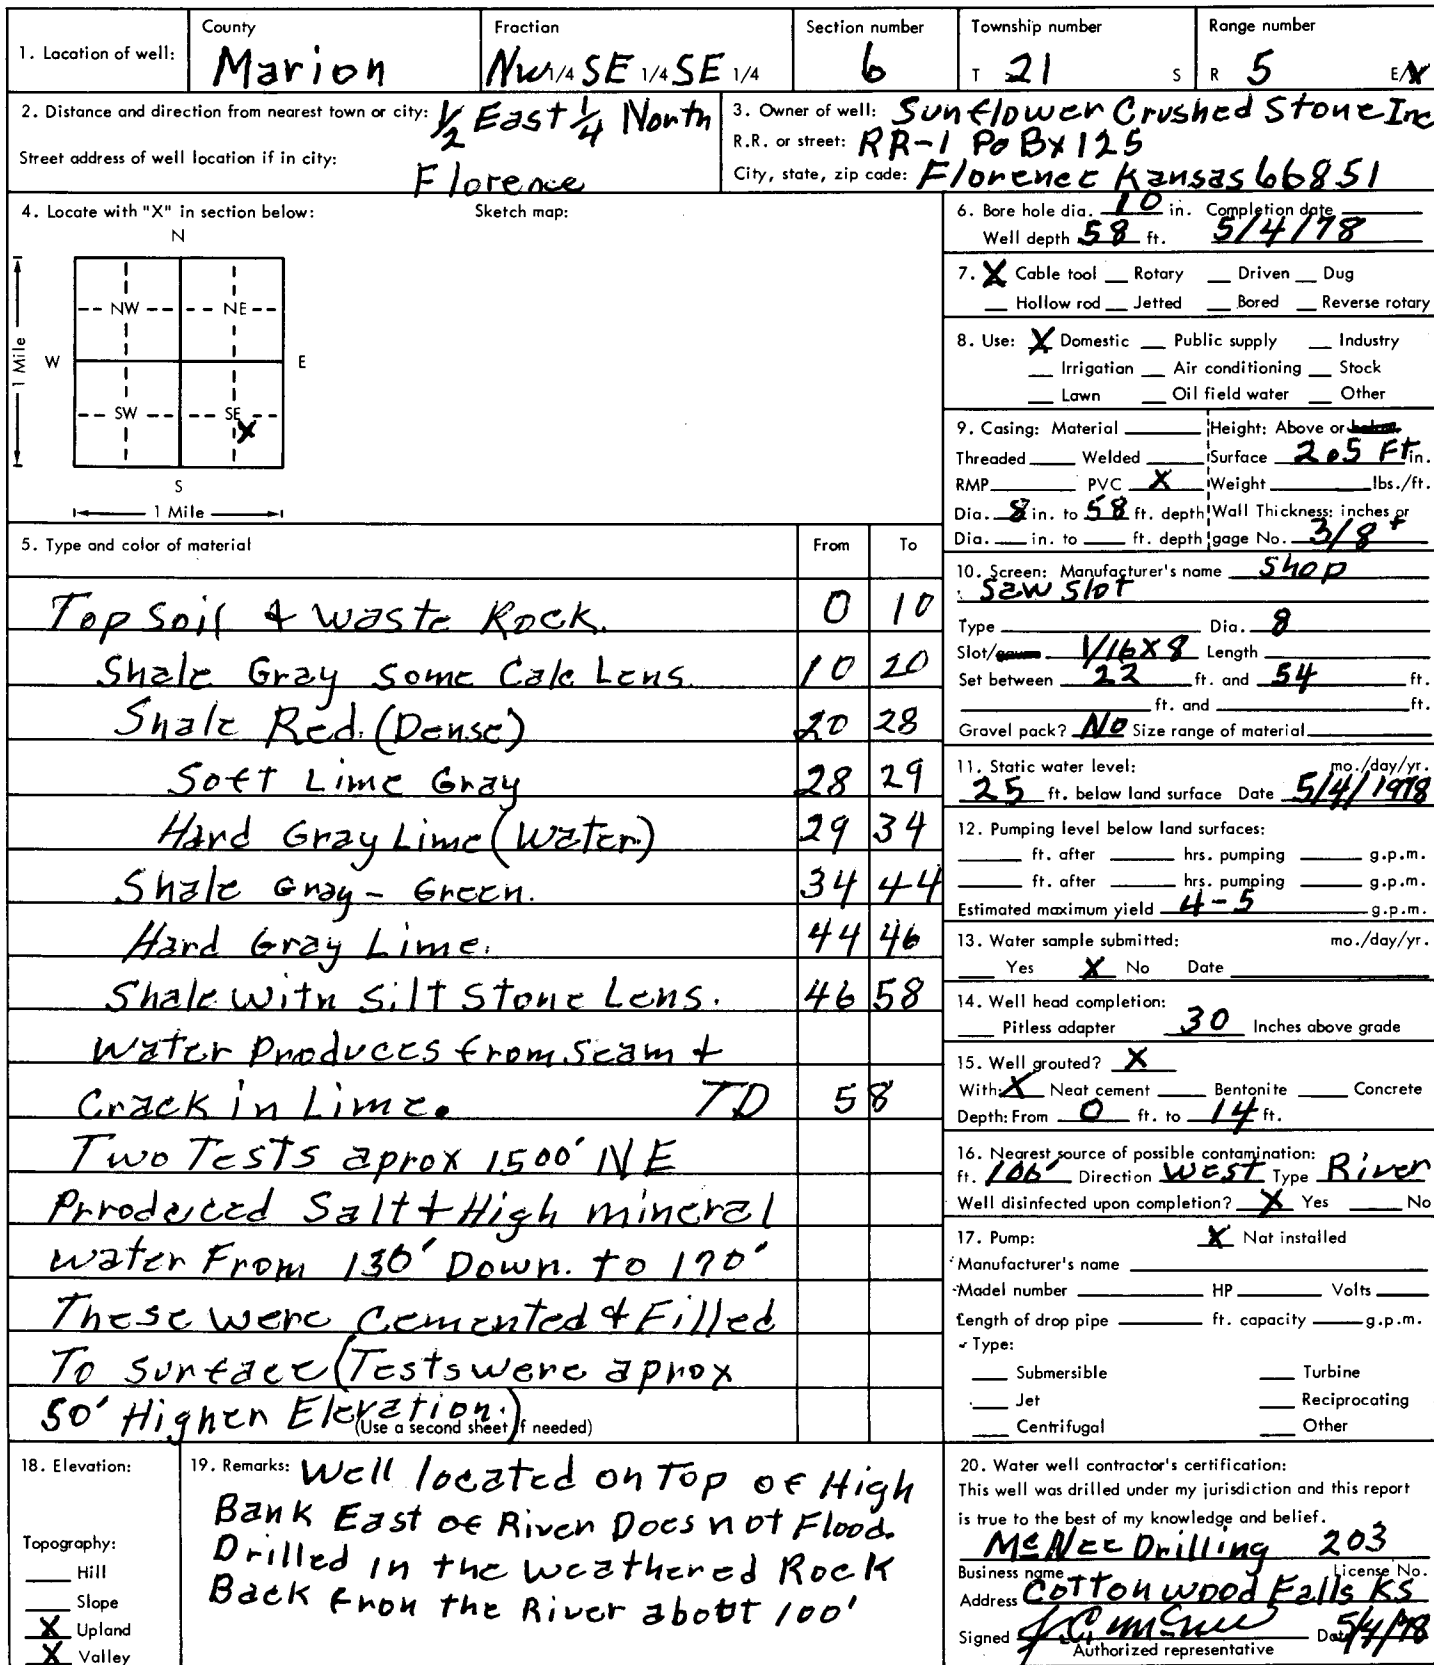 1. Location of well:
County
Marion
Fraction
NW 1/4 SE 1/4 SE 1/4
Section number
6
Township number
T 21 S
Range number
R 5 E/W
2. Distance and direction from nearest town or city: 1/2 East 1/4 North
Street address of well location if in city:
Florence
3. Owner of well: Sunflower Crushed Stone Inc
R.R. or street: RR-1 Po Bx 125
City, state, zip code: Florence Kansas 66851
4. Locate with "X" in section below:
Sketch map:
N
NW NE
1 Mile
W E
SW SE
X
S
1 Mile
5. Type and color of material From To
Top Soil & Waste Rock. 0 10
Shale Gray Some Calc Lens. 10 20
Shale Red. (Dense) 20 28
Soft Lime Gray 28 29
Hard Gray Lime (Water) 29 34
Shale Gray - Green. 34 44
Hard Gray Lime. 44 46
Shale with Silt Stone Lens. 46 58
Water Produces from Seam +
Crack in Lime. TD 58
Two Tests aprox 1500' NE
Prroduced Salt + High mineral
Water From 130' Down. to 170'
These were Cemented & Filled
To Surface (Tests were aprox
50' Higher Elevation.)
(Use a second sheet if needed)
6. Bore hole dia. 10 in. Completion date
Well depth 58 ft. 5/4/78
7. X Cable tool __ Rotary __ Driven __ Dug
__ Hollow rod __ Jetted __ Bored __ Reverse rotary
8. Use: X Domestic __ Public supply __ Industry
__ Irrigation __ Air conditioning __ Stock
__ Lawn __ Oil field water __ Other
9. Casing: Material ____ Height: Above or below
Threaded ____ Welded ____ Surface 2.5 Ft in.
RMP ____ PVC X Weight ____ lbs./ft.
Dia. 8 in. to 58 ft. depth Wall Thickness: inches or
Dia. __ in. to __ ft. depth gage No. 3/8 +
10. Screen: Manufacturer's name Shop
Saw Slot
Type ____ Dia. 8
Slot/gauze 1/16 X 8 Length ____
Set between 22 ft. and 54 ft.
____ ft. and ____ ft.
Gravel pack? No Size range of material ____
11. Static water level: mo./day/yr.
25 ft. below land surface Date 5/4/1978
12. Pumping level below land surfaces:
____ ft. after ____ hrs. pumping ____ g.p.m.
____ ft. after ____ hrs. pumping ____ g.p.m.
Estimated maximum yield 4-5 g.p.m.
13. Water sample submitted: mo./day/yr.
__ Yes X No Date ____
14. Well head completion:
__ Pitless adapter 30 Inches above grade
15. Well grouted? X
With: X Neat cement ____ Bentonite ____ Concrete
Depth: From 0 ft. to 14 ft.
16. Nearest source of possible contamination:
ft. 100' Direction West Type River
Well disinfected upon completion? X Yes ____ No
17. Pump: X Not installed
Manufacturer's name ____
Model number ____ HP ____ Volts ____
Length of drop pipe ____ ft. capacity ____ g.p.m.
Type:
__ Submersible __ Turbine
__ Jet __ Reciprocating
__ Centrifugal __ Other
18. Elevation:
Topography:
__ Hill
__ Slope
X Upland
X Valley
19. Remarks: Well located on Top of High
Bank East of River Does not Flood.
Drilled in the Weathered Rock
Back fron the River abott 100'
20. Water well contractor's certification:
This well was drilled under my jurisdiction and this report
is true to the best of my knowledge and belief.
McNee Drilling 203
Business name License No.
Address Cottonwood Falls Ks
Signed Date 5/4/78
Authorized representative